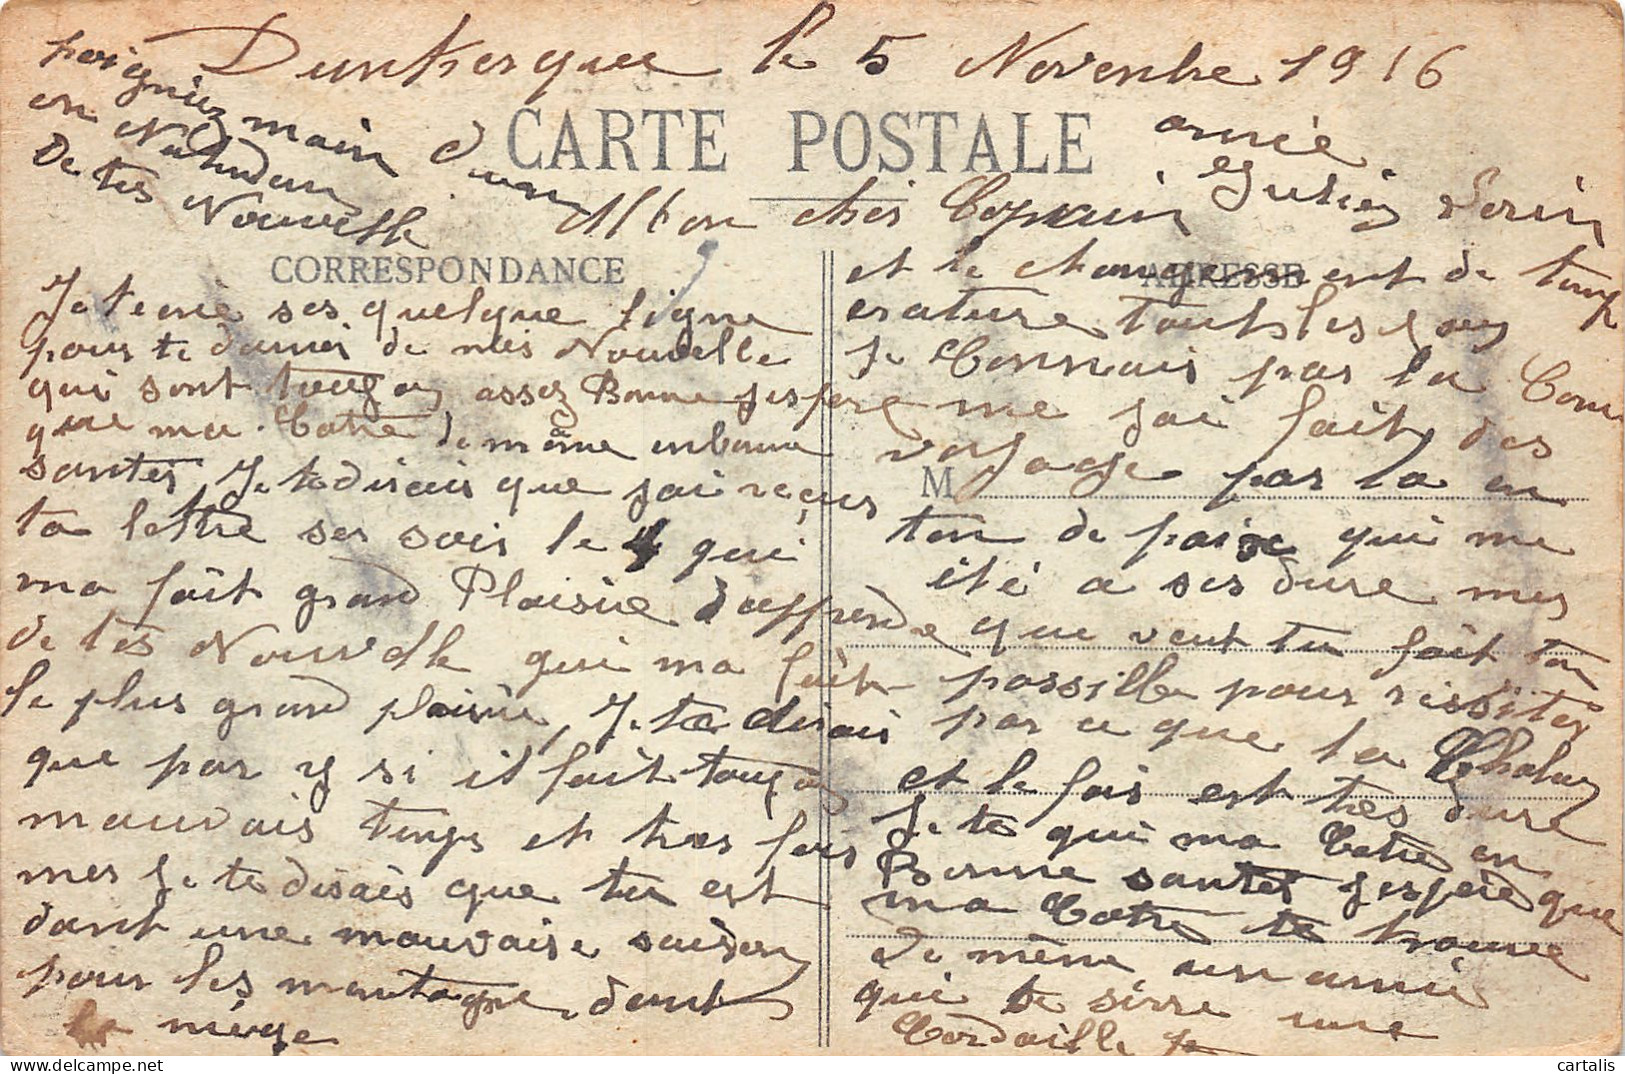 Dunkerque le 5 Novenbre 1916
CARTE POSTALE
Mon cher Copain
CORRESPONDANCE
Je tenvoie ses quelque ligne
pour te donner de mes Nouvelle
qui sont assez Bonne jespere
que ma Cartre de même en bonne
santer, Je te disais que jai reçus
ta lettre ses soir le 4 qui
ma fait grand Plaisire d'apprendre
de tes Nouvelle qui ma fait
le plus grand plaisire, Je te disais
que par y si il fait
mauvais temps et tres fois
mes Je te disais que tu est
dant une mauvaise saison
pour les montagne, dant
la nége
ADRESSE
et le changement de temp
erature tout les jours
Je Connais pas la Com
me jai fait des
voyage par la en
M
ten de paix qui me
été a ses dure mes
que veut tu fait ton
possible pour rissiter
par ce que la Chaleur
et le fois est tres dure
Je te qui ma Catre en
Bonne santer jespere que
ma Catre te trouve
de même un amie
qui te sirre une
Cordaille
poigniez main d'un
de tes Nouvelle
amie
cartalis